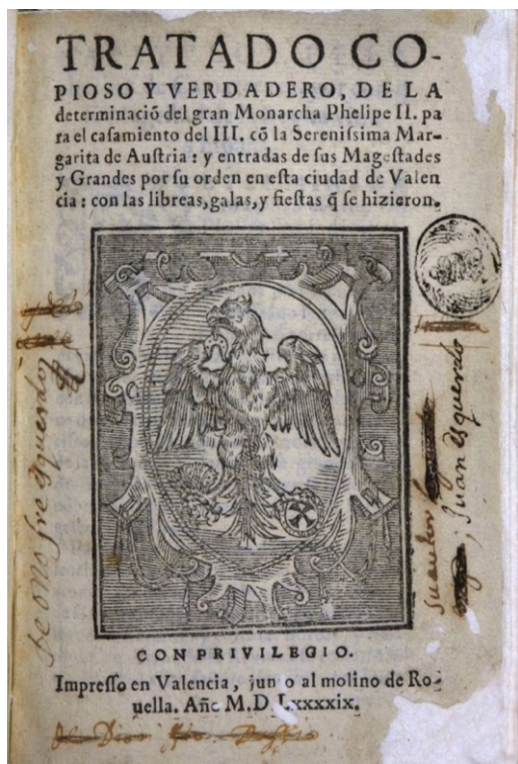 TRATADO CO-
PIOSO Y VERDADERO, DE LA
determinaciõ del gran Monarcha Phelipe II. pa
ra el casamiento del III. cõ la Serenissima Mar-
garita de Austria: y entradas de sus Magestades
y Grandes por su orden en esta ciudad de Valen
cia: con las libreas, galas, y fiestas q̃ se hizieron.
de onofre esquerdo
su autor
Juan esquerdo
CON PRIVILEGIO.
Impresso en Valencia, junto al molino de Ro-
uella. Año M.D.Lxxxxix.